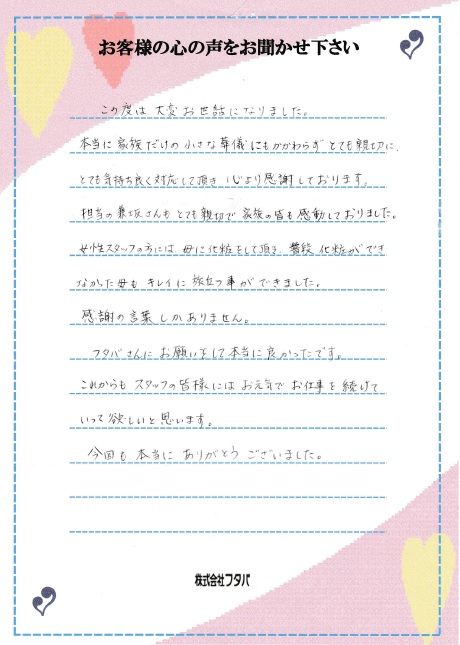 お客様の心の声をお聞かせ下さい
この度は 大変 お世話になりました。
本当に 家族だけの 小さな 葬儀にもかかわらず とても親切に、
とても気持ち良く対応して頂き 心より感謝しております。
担当の兼坂さんも とても親切で 家族の皆も感動しておりました。
女性スタッフの方には 母に化粧をして頂き 普段 化粧ができ
なかった母も キレイに 旅立つ事ができました。
感謝の言葉しかありません。
フタバさんに お願いをして本当に良かったです。
これからも スタッフの皆様には お元気で お仕事を 続けて
いって欲しいと思います。
今回も 本当に ありがとう ございました。
株式会社フタバ